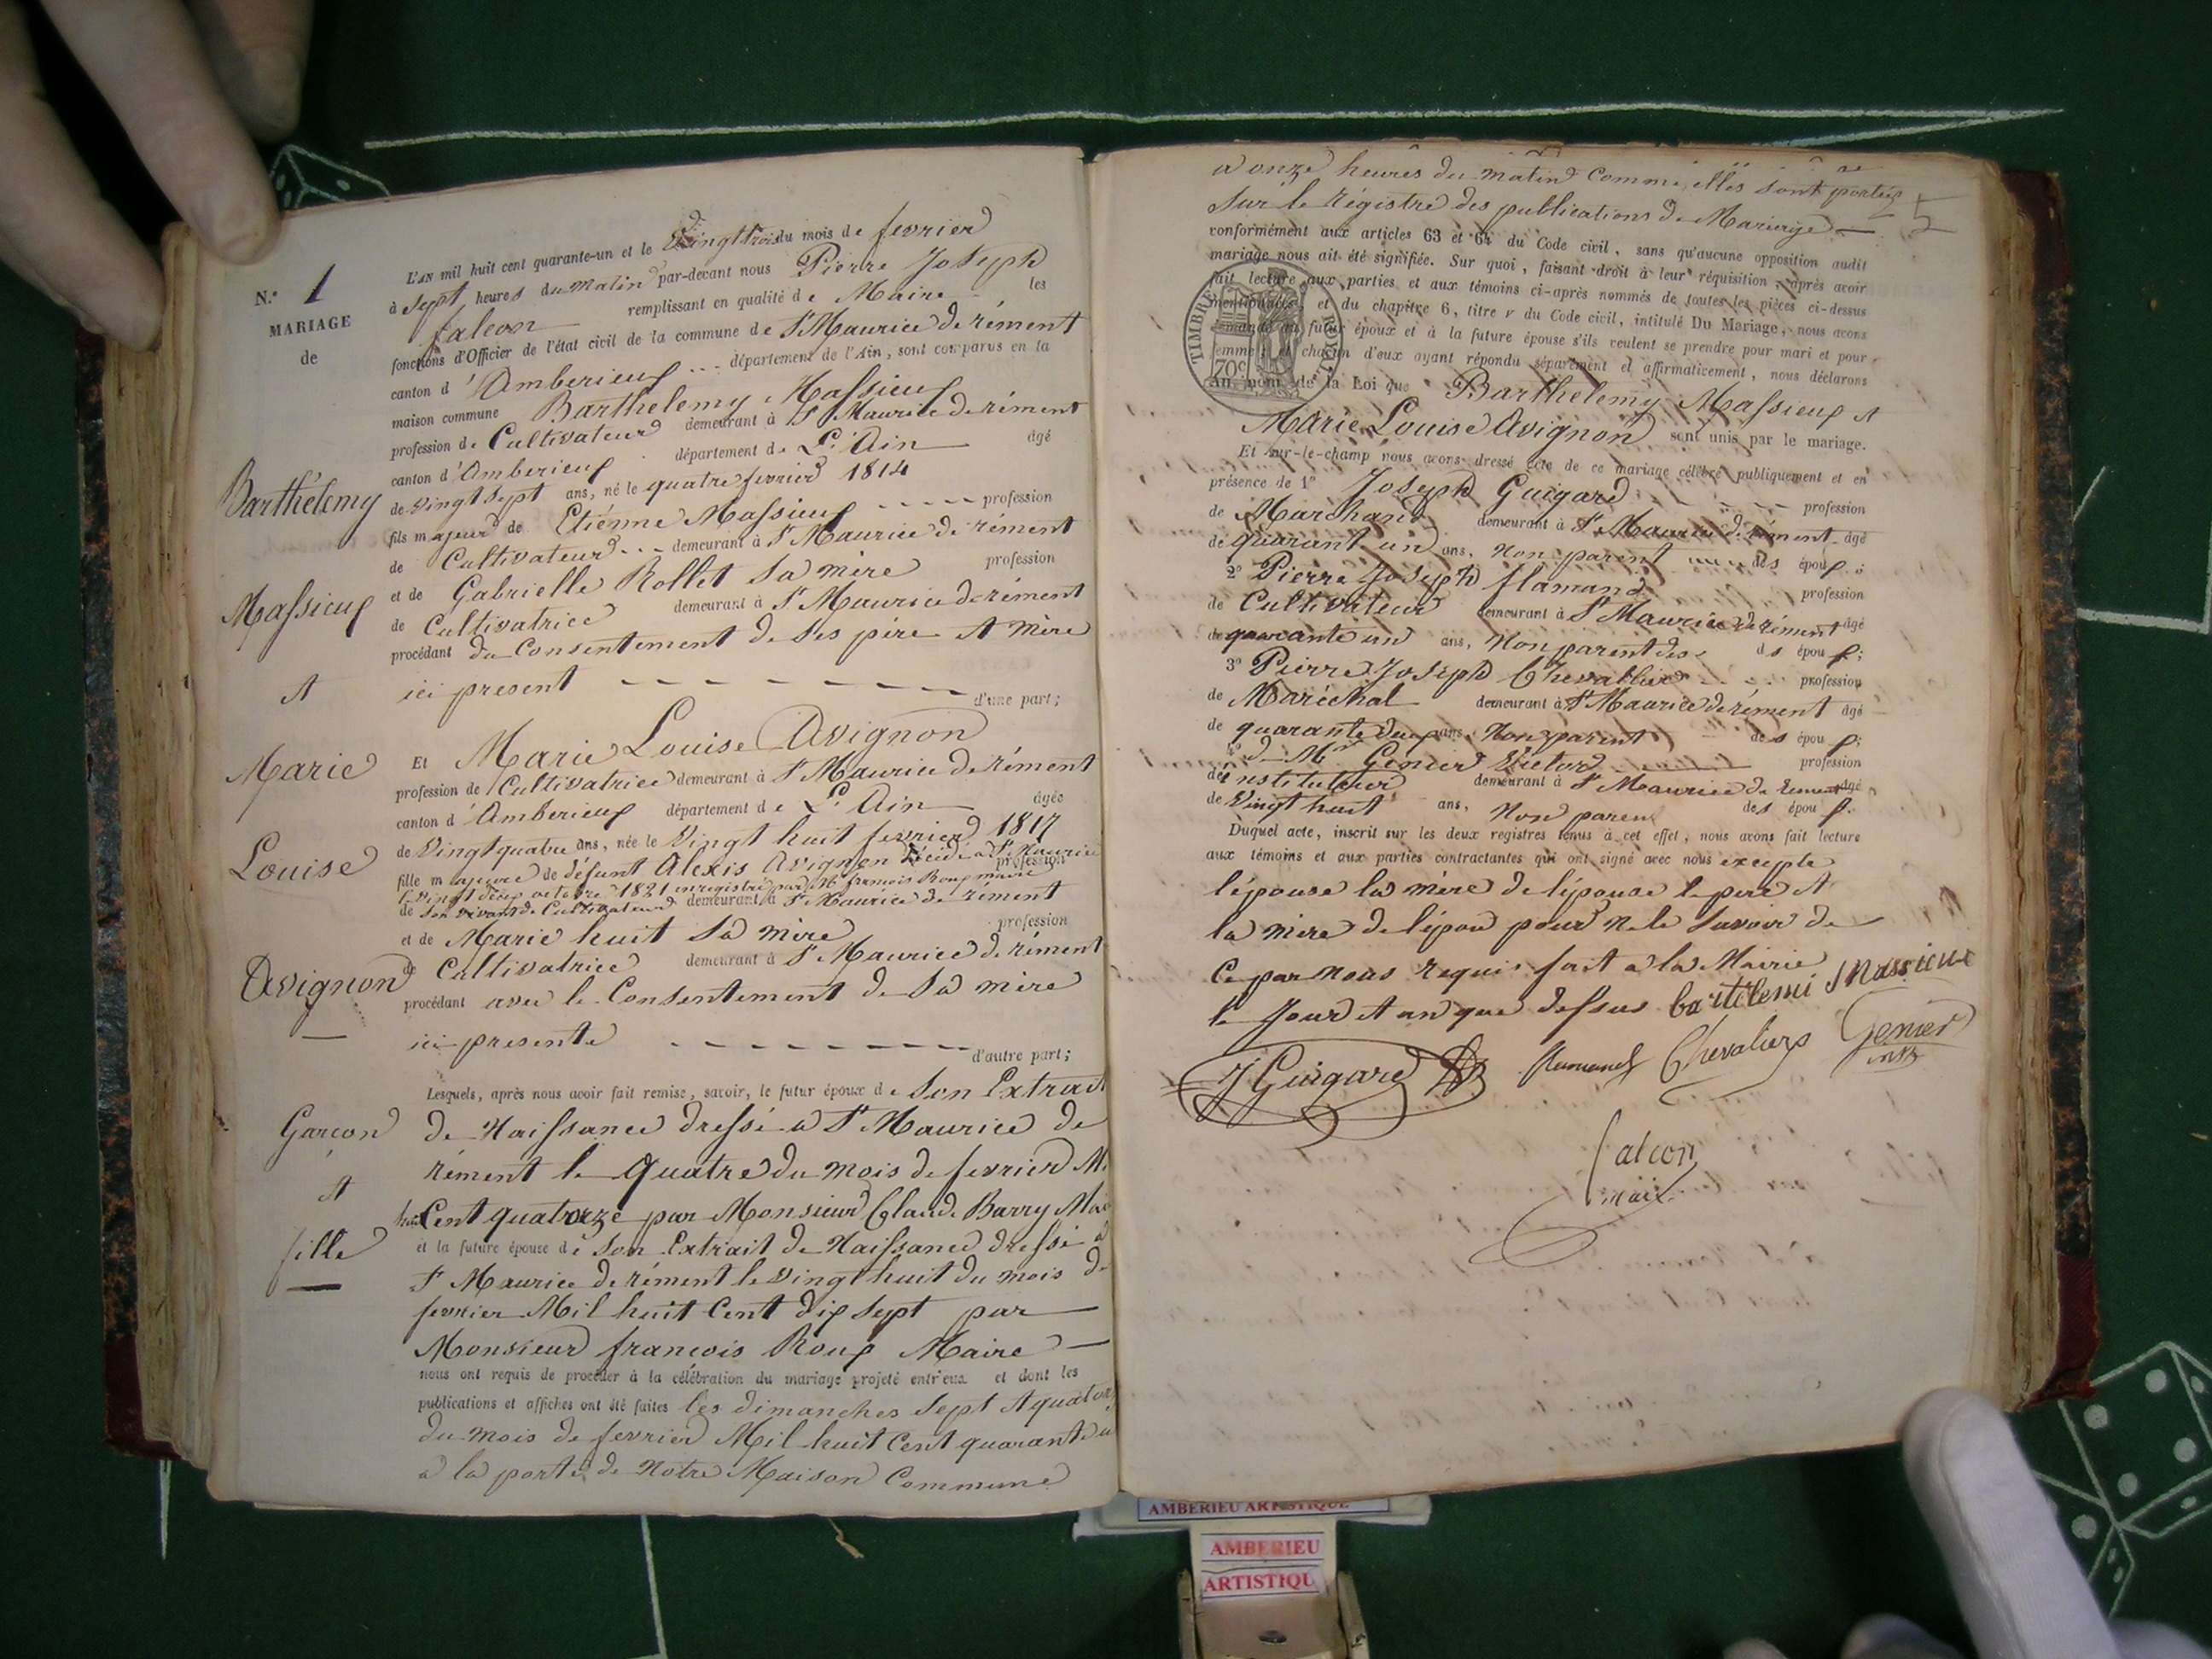 N.° 1
MARIAGE
de
Barthélemy
Massieux
et
Marie
Louise
Avignon
Garcon
et
fille
L'AN mil huit cent quarante-un et le Vingt trois du mois de fevrier
à sept heures du matin par-devant nous Pierre Joseph
falcon remplissant en qualité de Maire les
fonctions d'Officier de l'état civil de la commune de St Maurice de rément
canton d'Amberieux département de l'Ain, sont comparus en la
maison commune Barthelemy Massieux
profession de Cultivateur demeurant à St Maurice de rément
canton d'Amberieux département de L'Ain âgé
de vingt sept ans, né le quatre fevrier 1814
fils majeur de Etiénne Massieux profession
de Cultivateur demeurant à St Maurice de rément
et de Gabrielle Rollet sa mère profession
de Cultivatrice demeurant à St Maurice de rément
procédant du Consentement de ses père et mère
ici present d'une part;
Et Marie Louise Avignon
profession de Cultivatrice demeurant à St Maurice de rément
canton d'Amberieux département de L'Ain âgée
de Vingt quatre ans, née le Vingt huit fevrier 1817
fille majeure de défunt Alexis Avignon décédé a St Maurice profession
le vingt octobre 1821 enregistré par M. francois Roux maire
de son vivant de Cultivateur demeurant à St Maurice de rément
et de Marie huit sa mère profession
de Cultivatrice demeurant à St Maurice de rément
procédant avec le Consentement de sa mère
ici presente d'autre part;
Lesquels, après nous avoir fait remise, savoir, le futur époux de son Extrait
de Naissance dressé a St Maurice de
rément le quatre du mois de fevrier
Cent quatorze par Monsieur Claude Barry
et la future épouse de son Extrait de Naissance dressé a
St Maurice de rément le vingt huit du mois de
fevrier Mil huit Cent dix sept par
Monsieur francois Roux Maire
nous ont requis de procéder à la célébration du mariage projeté entr'eux et dont les
publications et affiches ont été faites les dimanches sept et quatorze
du mois de fevrier Mil huit Cent quarante un
a la porte de Notre Maison Commune
a onze heures du matin comme elles sont portées
sur le régistre des publications de Mariage
25
conformément aux articles 63 et 64 du Code civil, sans qu'aucune opposition audit
mariage nous ait été signifiée. Sur quoi, faisant droit à leur réquisition, après avoir
fait lecture aux parties et aux témoins ci-après nommés de toutes les pièces ci-dessus
mentionnées, et du chapitre 6, titre v du Code civil, intitulé Du Mariage, nous avons
demandé au futur époux et à la future épouse s'ils veulent se prendre pour mari et pour
femme; et chacun d'eux ayant répondu séparément et affirmativement, nous déclarons
Au nom de la Loi que Barthelemy Massieux et
Marie Louise Avignon sont unis par le mariage.
TIMBRE ROYAL
70c
Et sur-le-champ nous avons dressé acte de ce mariage célébré publiquement et en
présence de 1° Joseph Guigard profession
de Marchand demeurant à St Maurice de rément âgé
de quarant un ans, Non parent des époux;
2° Pierre Joseph flamand profession
de Cultivateur demeurant à St Maurice de rément âgé
de quarante un ans, Non parent des époux;
3° Pierre Joseph Chevallier profession
de Maréchal demeurant à St Maurice de rément âgé
de quarante deux ans, Non parent des époux;
4° Mr Genier Victor profession
de instituteur demeurant à St Maurice de Rement âgé
de Vingt huit ans, Non parent des époux.
Duquel acte, inscrit sur les deux registres tenus à cet effet, nous avons fait lecture
aux témoins et aux parties contractantes qui ont signé avec nous excepte
lépouse la mère de lépouse le pere et
la mère de lépou pour ne le savoir de
Ce par nous requis fait a la Mairie
le Jour et an que dessus bartélemi Massieux
J Guigard Chevaliers Genier
falcon
maire
AMBERIEU ARTISTIQUE
AMBERIEU
ARTISTIQU